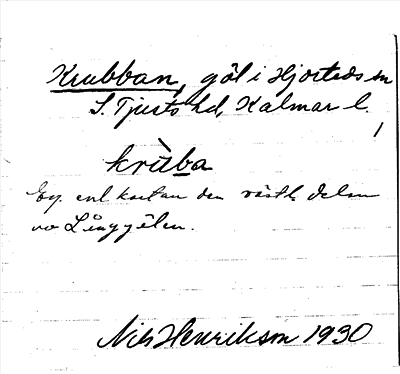 Krubban, göl i Hjorteds sn
S. Tjusts hd, Kalmar l.
1
krùba
Eg. enl kartan den västl. delen
av Långgölen.
Nils Henrikson 1930